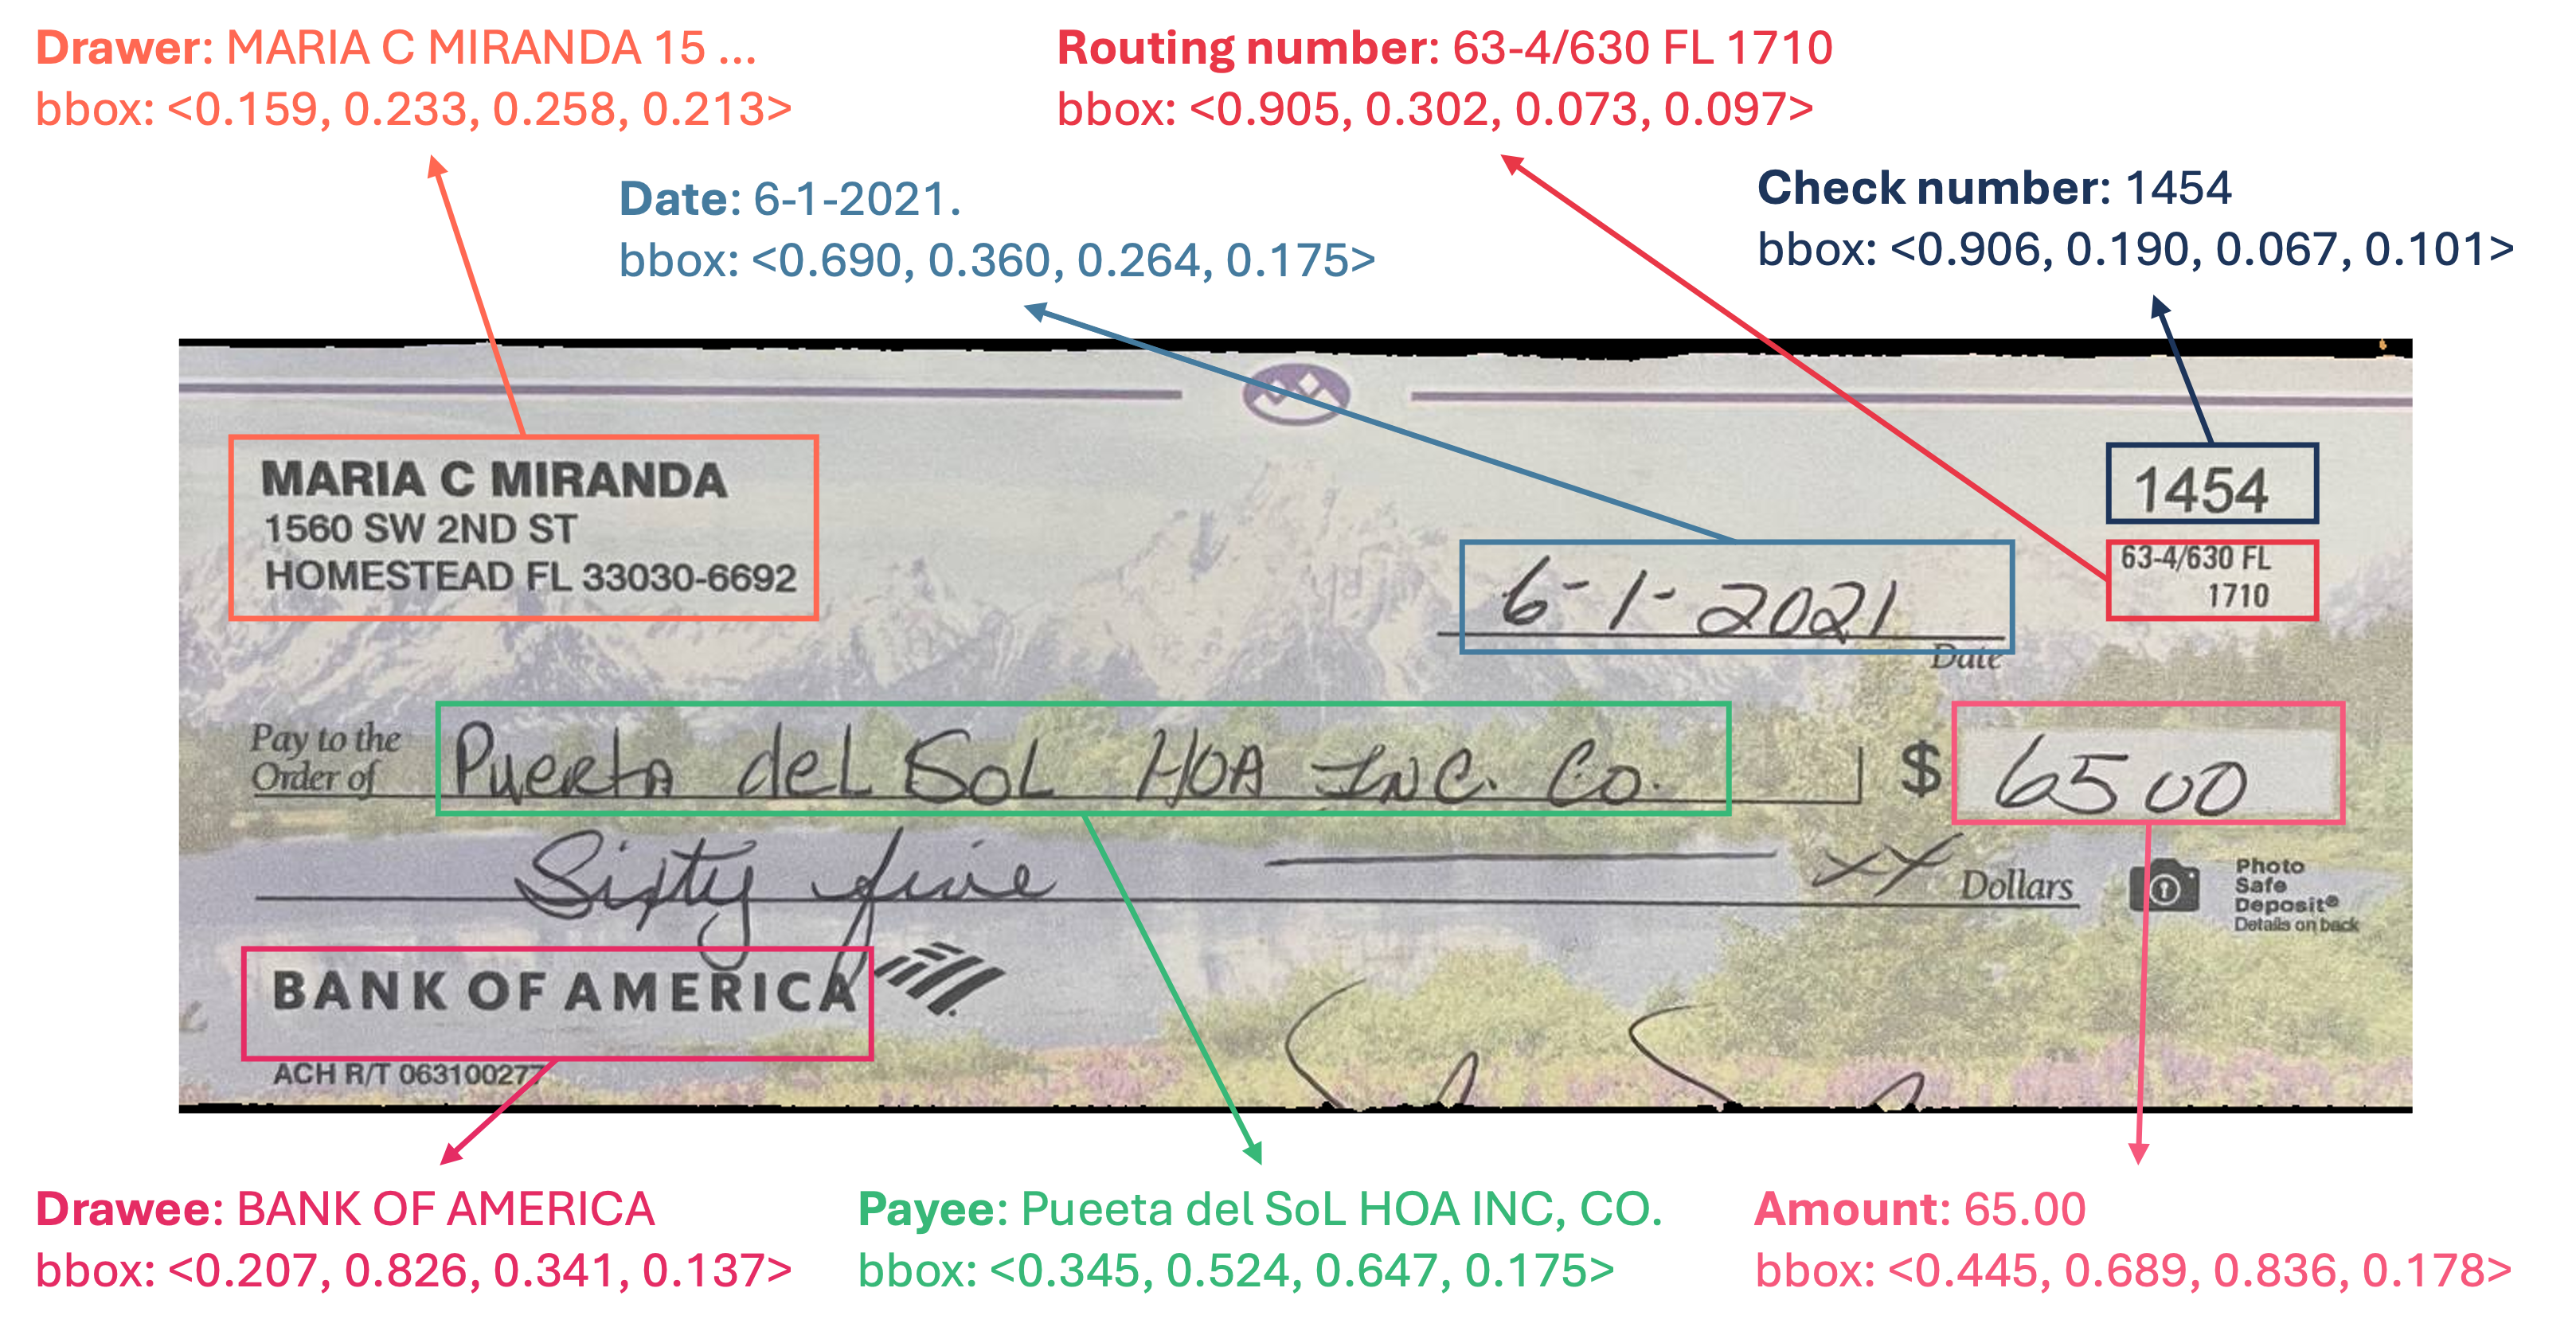 Drawer: MARIA C MIRANDA 15 ...
bbox: <0.159, 0.233, 0.258, 0.213>
Routing number: 63-4/630 FL 1710
bbox: <0.905, 0.302, 0.073, 0.097>
Date: 6-1-2021.
bbox: <0.690, 0.360, 0.264, 0.175>
Check number: 1454
bbox: <0.906, 0.190, 0.067, 0.101>
MARIA C MIRANDA
1560 SW 2ND ST
HOMESTEAD FL 33030-6692
1454
63-4/630 FL
1710
6-1-2021
Date
Pay to the
Order of
Puerta del SoL HOA INC. Co.
$ 65 00
Sixty five xx Dollars
Photo
Safe
Deposit®
Details on back
BANK OF AMERICA
ACH R/T 063100277
Drawee: BANK OF AMERICA
bbox: <0.207, 0.826, 0.341, 0.137>
Payee: Pueeta del SoL HOA INC, CO.
bbox: <0.345, 0.524, 0.647, 0.175>
Amount: 65.00
bbox: <0.445, 0.689, 0.836, 0.178>